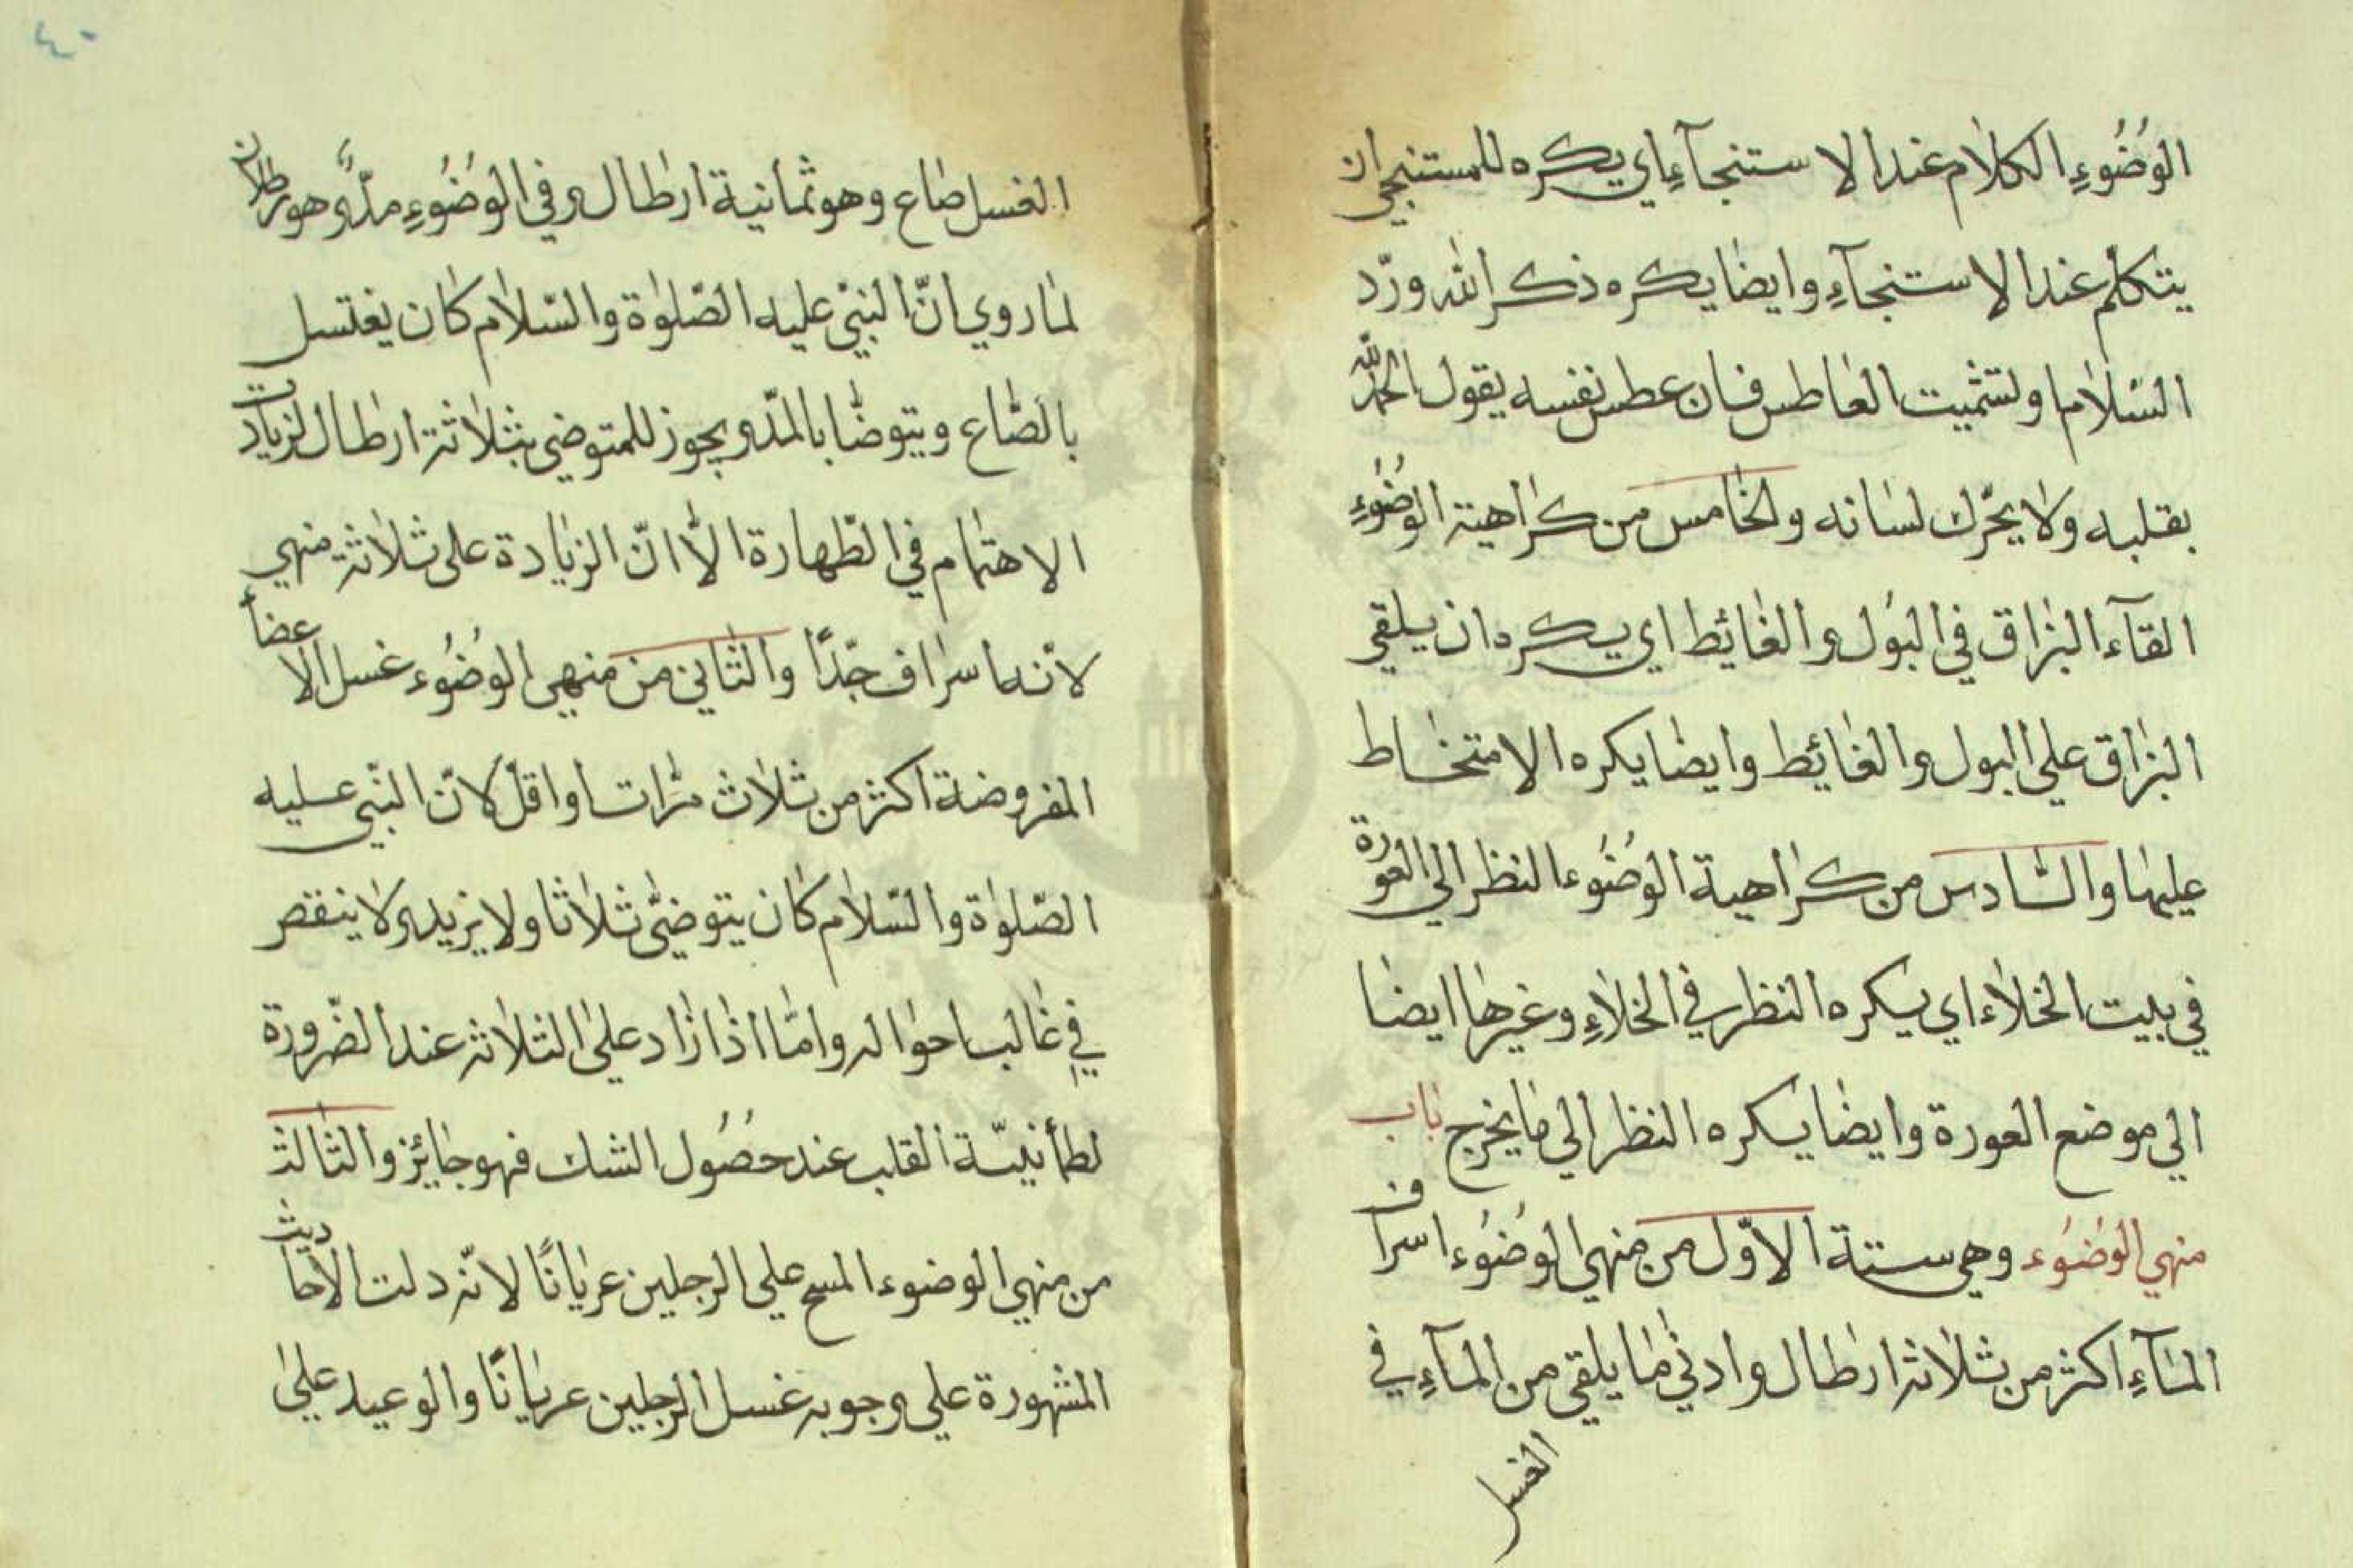 الوُضُوءِ الكلام عند الاستنجآءِ اي يكره للمستنجي ان
يتكلم عند الاستنجآءِ وايضا يكره ذكر الله وردّ
السّلام او تشميت العاطس فان عطس نفسه يقول الحمد لله
بقلبه ولا يحرّك لسانه والخامس من كراهية الوضُوءِ
القآء البزاق في البول والغائيط اي يكره ان يلقي
البزاق علي البول والغائيط وايضا يكره الامتخاط
عليهما والسّادس من كراهية الوضُوء النظر الي العورة
في بيت الخلآء اي يكره النظر في الخلآءِ وغيرها ايضا
الي موضع العورة وايضا يكره النظر الي ما يخرج باب
منهي الوُضوُء وهي ستة الاوّل من منهي الوُضُوء اسراف
المآءِ اكثر من ثلاثه ارطال وادني ما يلقي من المآءِ في
الغسل
٤٠
الغسل صاع وهو ثمانية ارطال وفي الوُضُوءِ مدٌّ وهو رطلان
لما روي انّ النبيّ عليه الصّلوٰة والسّلام كان يغتسل
بالصّاع ويتوضّا بالمدّ ويجوز للمتوضي بثلاثة ارطال لزيادت
الاهتمام في الطّهارة الّا انّ الزيادة علي ثلاثة منهي
لانّها سراف جدًّا والثّاني من منهي الوُضُوء غسل الاعضأ
المفروضة اكثر من ثلاث مرّات او اقلّ لانّ النبّي عليه
الصّلوٰة والسّلام كان يتوضّى ثلاثا ولا يزيد ولا ينقص
في غالب احواله وامّا اذا زاد علي الثلاثه عند الضّرورة
لطمأنيّة القلب عند حصُول الشك فهو جائيز والثالث
من منهي الوضوء المسح علي الرجلين عريانًا لانّه دلت الاحاديث
المشهورة علي وجوبه غسل الرجلين عريانًا والوعيد علي